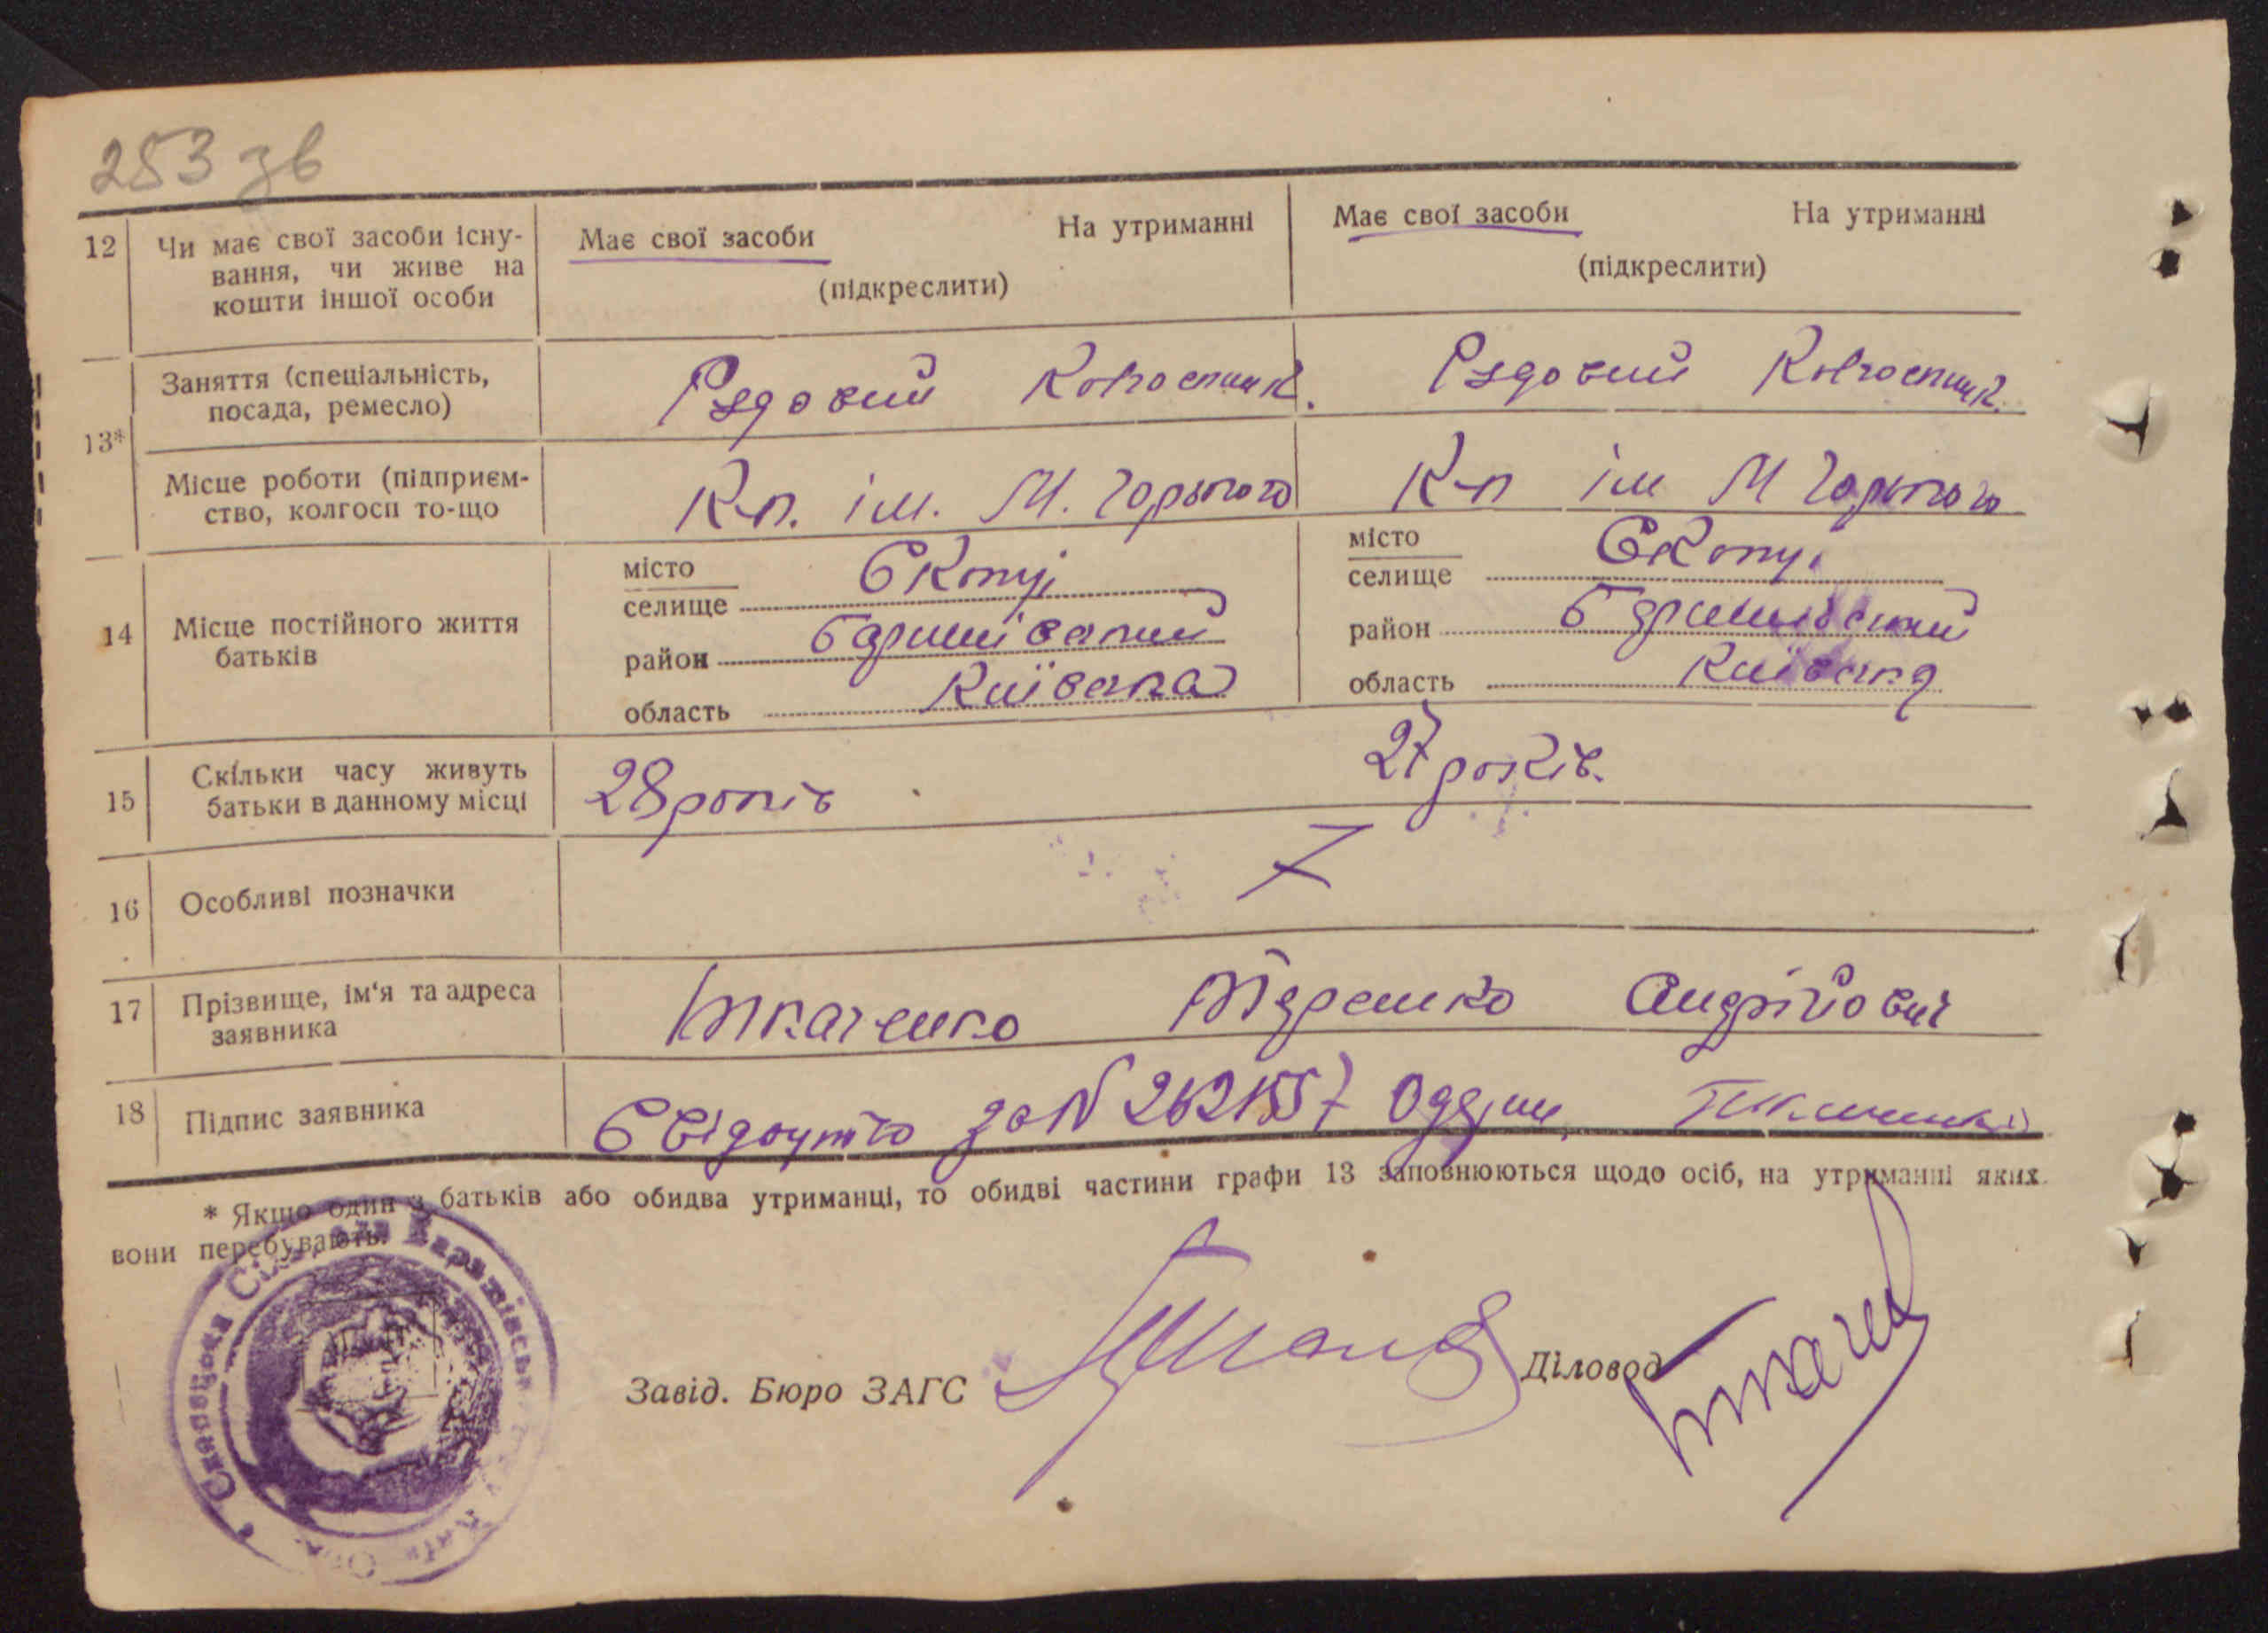 253 зв
12 Чи має свої засоби існу- Має свої засоби На утриманні Має свої засоби На утриманні
вання, чи живе на (підкреслити) (підкреслити)
кошти іншої особи
13* Заняття (спеціальність, Рядовий Колгоспник. Рядовий Колгоспник.
посада, ремесло)
Місце роботи (підприєм- К-п. ім. М. Горького К-п ім М Горького
ство, колгосп то-що
14 Місце постійного життя батьків
місто
селище Скопці
район Баришівський
область Київська
місто
селище Скопці
район Баришівський
область Київська
15 Скільки часу живуть 28 років 27 років.
батьки в данному місці
16 Особливі позначки
17 Прізвище, ім'я та адреса Ткаченко Андрійович
заявника
18 Підпис заявника за N
* Якщо один з батьків або обидва утриманці, то обидві частини графи 13 заповнюються щодо осіб, на утриманні яких
вони перебувають.
Завід. Бюро ЗАГС Діловод